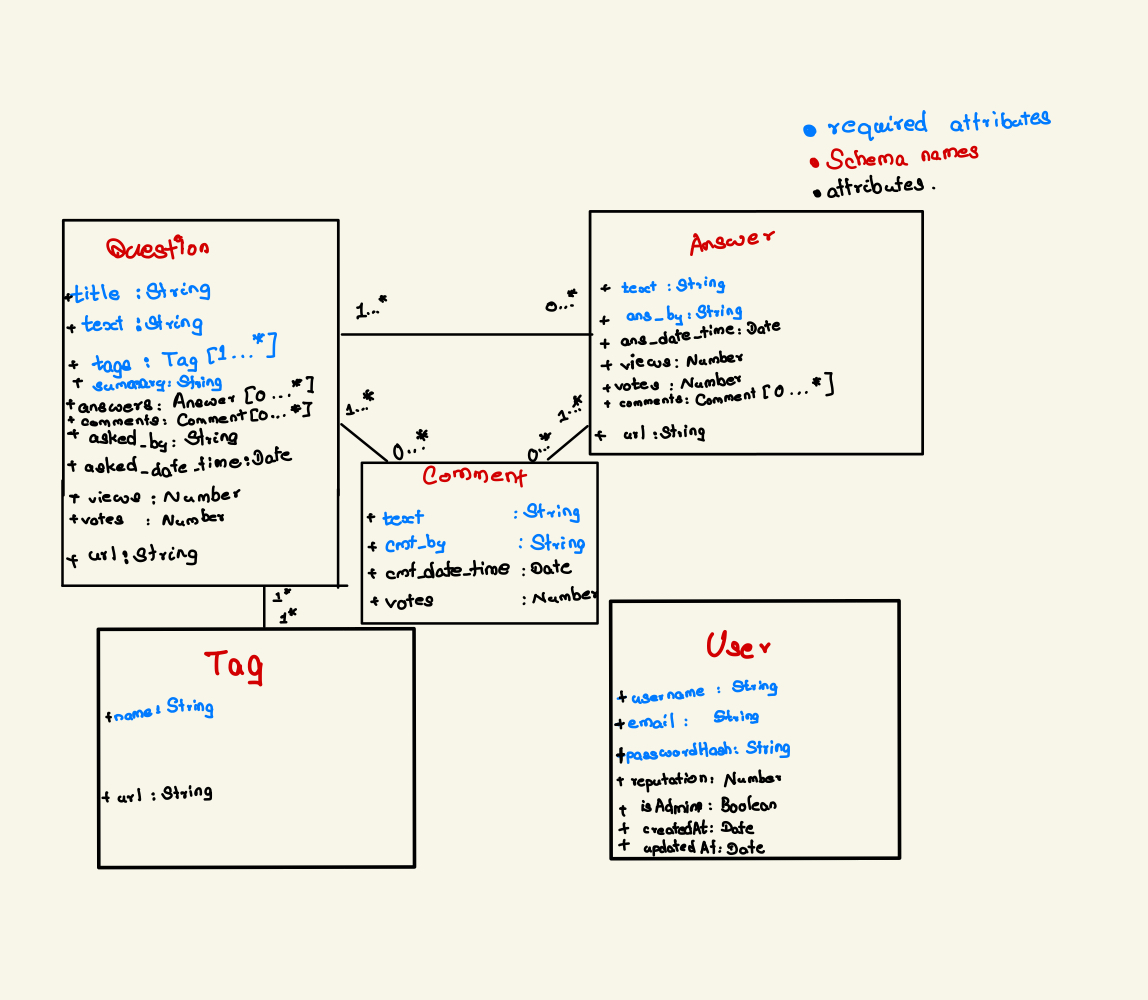 • required attributes
• Schema names
• attributes.
Question
+ title : String
+ text : String
+ tags : Tag [1...*]
+ summary: String
+ answers: Answer [0...*]
+ comments: Comment [0...*]
+ asked_by: String
+ asked_date_time: Date
+ views : Number
+ votes : Number
+ url : String
1...*
0...*
Answer
+ text : String
+ ans_by: String
+ ans_date_time: Date
+ views : Number
+ votes : Number
+ comments: Comment [0...*]
+ url : String
1...*
0...*
1...*
0...*
Comment
+ text : String
+ cmt_by : String
+ cmt_date_time : Date
+ votes : Number
1*
1*
Tag
+ name: String
+ url : String
User
+ username : String
+ email : String
+ passwordHash: String
+ reputation: Number
+ isAdmin : Boolean
+ createdAt: Date
+ updatedAt: Date